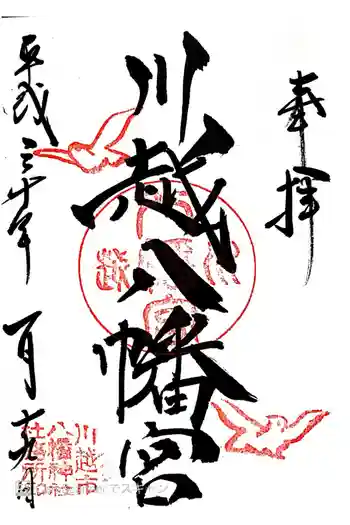 奉拝
川越八幡宮
平成三十年
一月十九日
川越市
八幡神
社務所